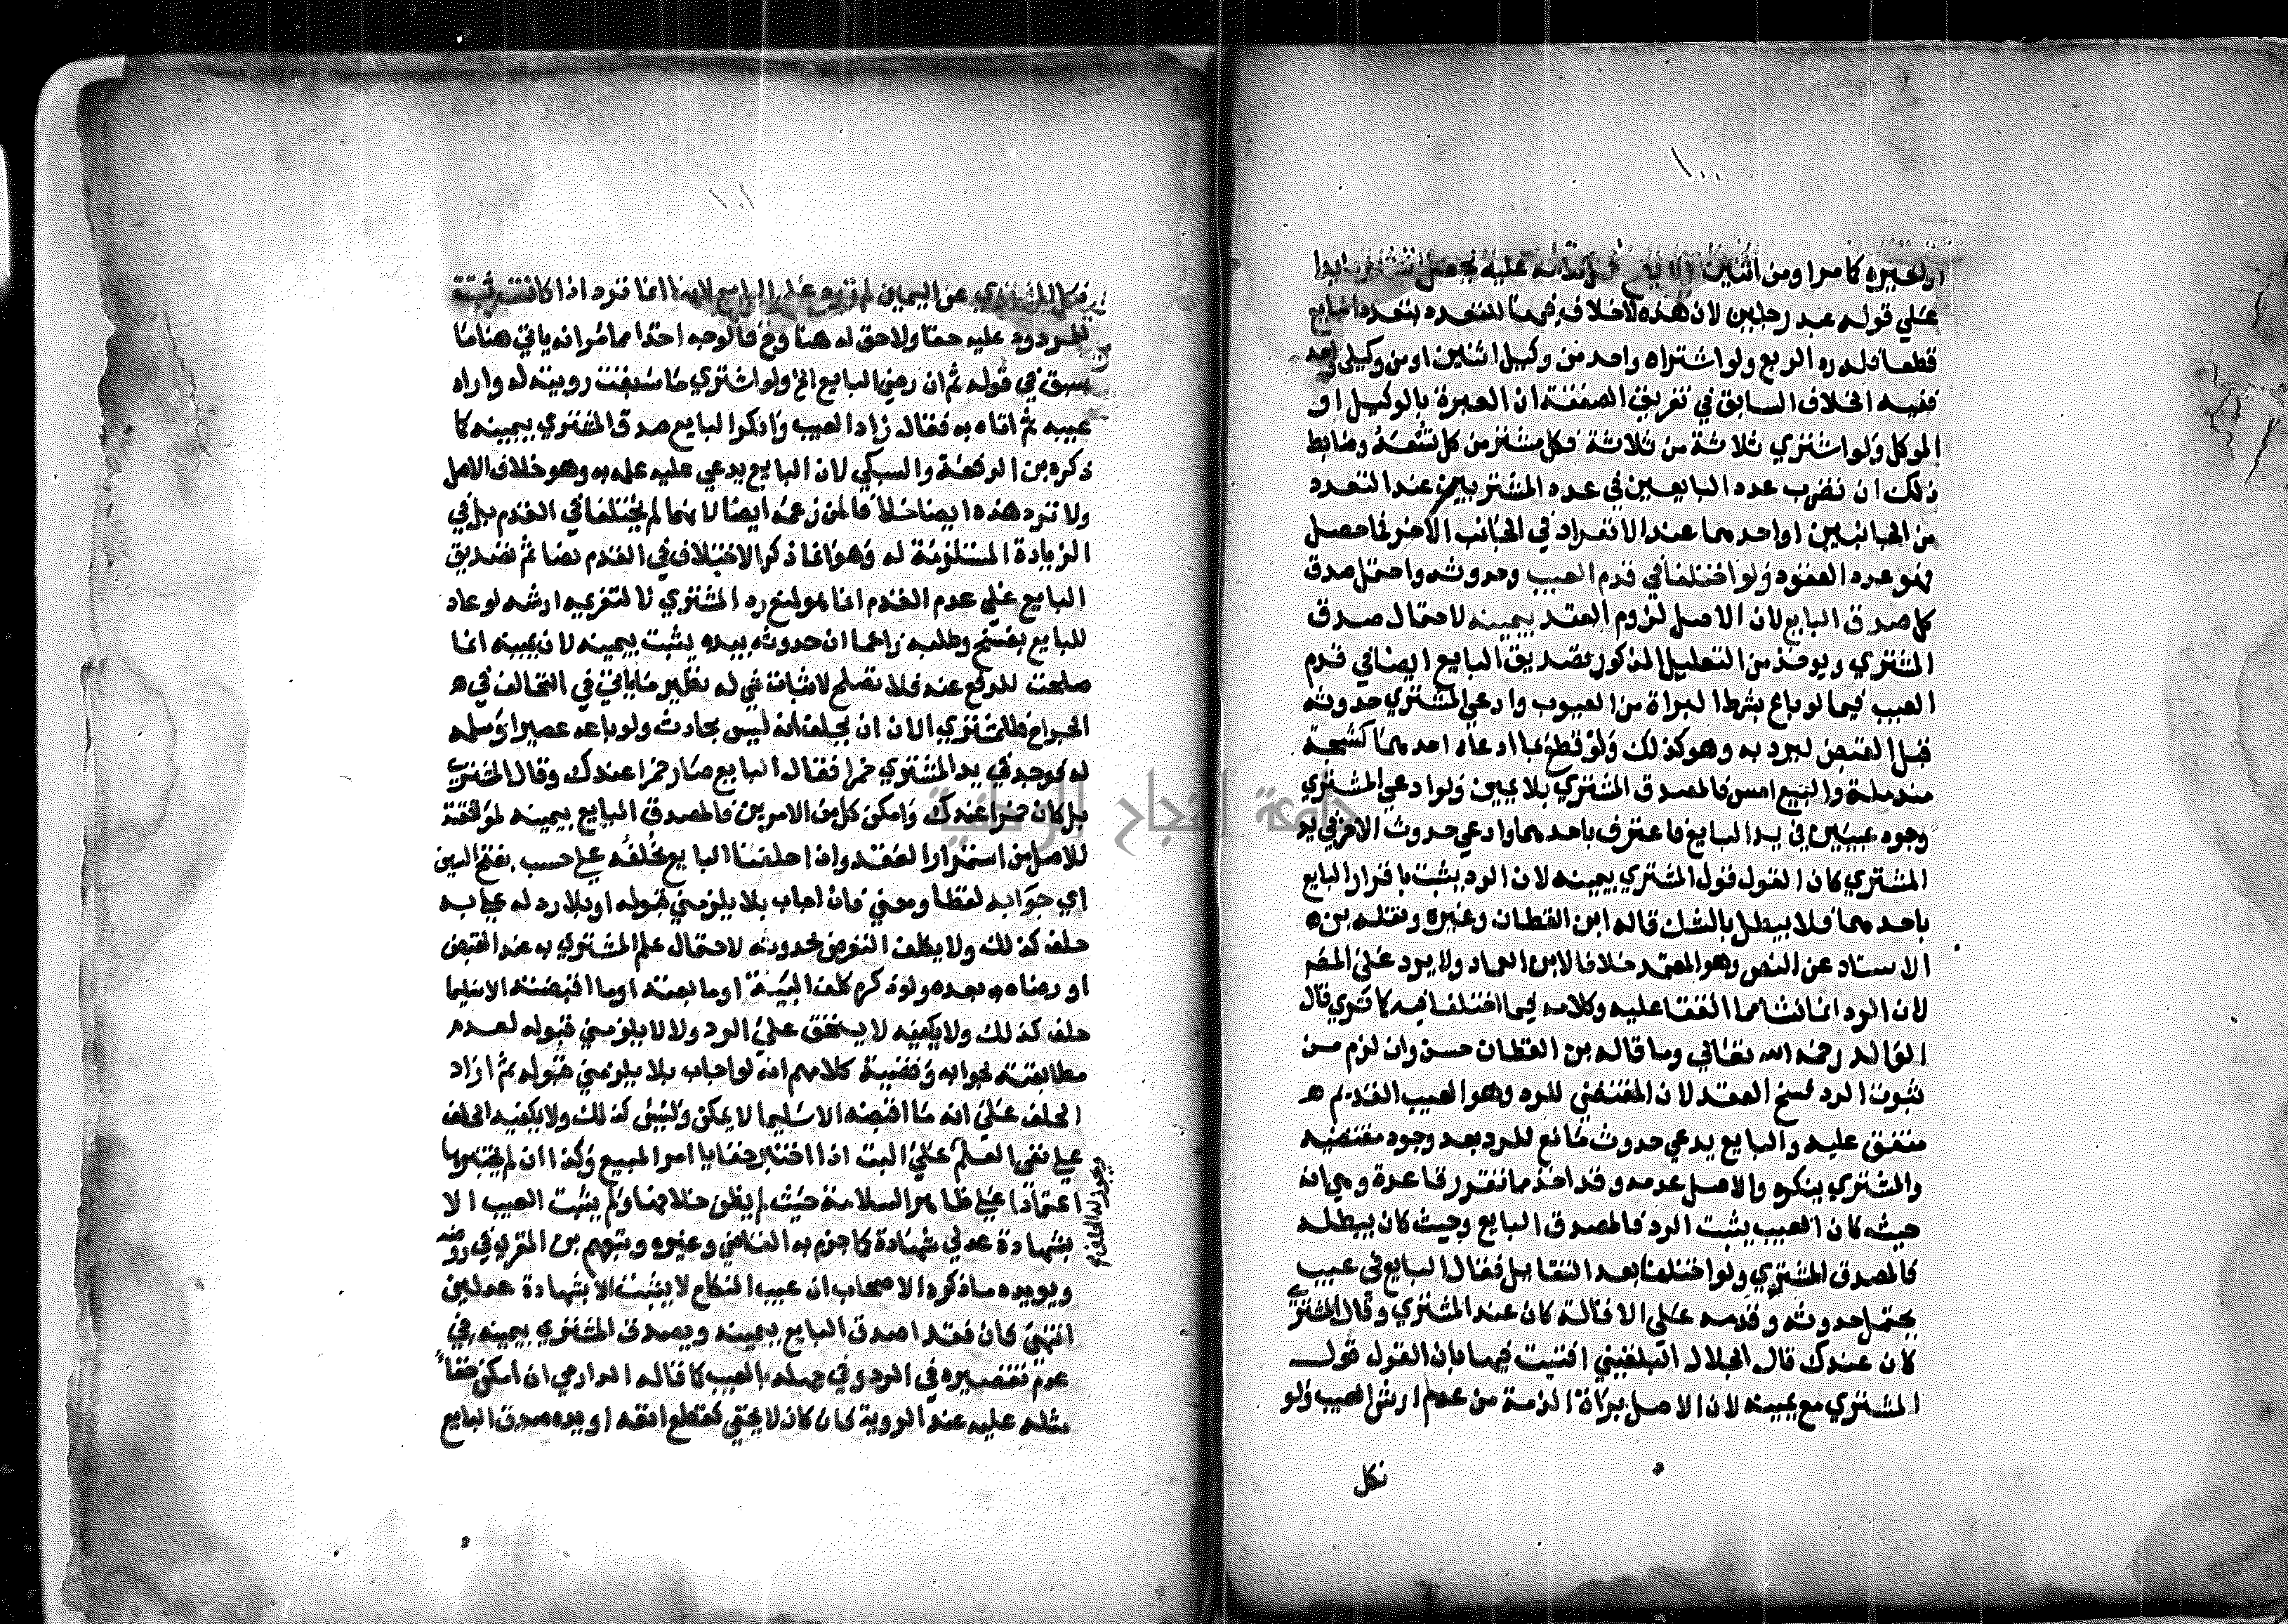 ١٠٠
ولغيره كما مرا ومن اثنين ولا يصح
علي قوله عبد رجلين لان هذه لا خلاف فيها للتعدده بتعدد البايع
قطعا فله رد الربع ولو اشتراه واحد من وكيل اثنين او من وكيلي واحد
ففيه الخلاف السابق في تفريق الصفقة ان العبرة بالوكيل او
الموكل ولو اشتري ثلاثة من ثلاثة فكل مشتر من كل تسعه وضابط
ذلك ان نضرب عدد البايعين في عدد المشتريين عند التعدد
من الجانبين او احدهما عند الانفراد في الجانب الاخر فما حصل
فهو عدد العقود ولو اختلفا في قدم العيب وحدوثه واحتمل صدق
كل صدق البايع لان الاصل لزوم العقد بيمينه لاحتمال صدق
المشتري ويوخذ من التعليل المذكور تصديق البايع ايضا في قدم
العيب فيما لو باع بشرط البراة من العيوب وادعي المشتري حدوثه
قبل القبض ليرد به وهو كذلك ولو قطع بما ادعاه احدهما كشجة
مندملة والبيع امس فالمصدق المشتري بلا يمين ولو ادعي المشتري
وجود عيبين في يد البايع فاعترف باحدهما وادعي حدوث الاخر في يد
المشتري كان القول قول المشتري بيمينه لان الرد يثبت باقرار البايع
باحدهما فلا يبطل بالشك قاله ابن القطان وغيره ونقله بن
الاستاد عن النص وهو المعتمد خلافا لابن العماد ولا يرد علي المصـ
لان الرد انما نشا مما اتفقا عليه وكلامه فيما اختلفا فيه كما تري قال
الوالد رحمه الله تعالي وما قاله بن القطان حسن وان لزم من
ثبوت الرد فسخ العقد لان المقتضي للرد وهو العيب القديم
متفق عليه والبايع يدعي حدوث مانع للرد بعد وجود مقتضيه
والمشتري ينكره والاصل عدمه وقد اخذ مما تقرر قاعدة وهي انه
حيث كان العيب يثبت الرد فالمصدق البايع وحيث كان يبطله
فالمصدق المشتري ولو اختلفا بعد التقايل فقال البايع في عيب
يحتمل حدوثه وقدمه علي الاقالة كان عند المشتري وقال المشتري
كان عندك قال الجلال البلقيني افتيت فيها بان القول قول
المشتري مع يمينه لان الاصل براة الذمة من عدم ارش العيب ولو
نكل
١٠١
نكل المشتري عن اليمين لم ترد علي البايع لانها انما ترد اذا كانت تثبت
للمردود عليه حقا ولا حق له هنا وح فالوجه اخذا مما مر انه ياتي هنا ما
سبق في قوله ثم ان رضي البايع الخ ولو اشتري ما سبقت رويته له واراد
عيبه ثم اتاه به فقال زاد العيب وانكر البايع صدق المشتري بيمينه كما
ذكره بن الرفعة والسبكي لان البايع يدعي عليه علمه به وهو خلاف الاصل
ولا ترد هذه ايضا خلافا لمن زعمه ايضا لانهما لم يختلفا في القدم بل في
الزيادة المستلزمة له وهو انما ذكر الاختلاف في القدم نصا ثم تصديق
البايع علي عدم القدم انما هو لمنع رد المشتري لا لتغريمه ارشه لو عاد
للبايع بفسخ وطلبه زاعما ان حدوثه بيده يثبت بيمينه لان يمينه انما
صلحت للدفع عنه فلا تصلح لاثبات شي له نظير ما ياتي في التحالف في
الجراح فللمشتري الان ان يحلف انه ليس بحادث ولو باعه عصيرا وسلمه
له فوجد في يد المشتري خمرا فقال البايع صار خمرا عندك وقال المشتري
بل كان خمرا عندك وامكن كل من الامرين فالمصدق البايع بيمينه لموافقته
للاصل من استمرار العقد واذا حلفنا البايع نحلفه علي حسب بفتح السين
اي جوابه لفظا ومعني فان اجاب بلا يلزمني قبوله او بلا رد له علي به
حلف كذلك ولا يكلف التعرض لحدوثه لاحتمال علم المشتري به عند القبض
او رضاه به بعده ولو ذكره كلف البينة او ما بعته او ما اقبضته الا سليما
حلف كذلك ولا يكفيه لا يستحق علي الرد ولا لا يلزمني قبوله لعدم
مطابقته لجوابه وقضية كلامهم انه لو اجاب بلا يلزمني قبوله ثم اراد
الحلف علي انه ما اقبضه الا سليما لا يمكن وليس كذلك ولا يكفيه الحلف
علي نفي العلم علي البت اذا اختبر خفايا امر المبيع وكذا ان لم يختبرها
اعتمادا علي ظاهر السلامة حيث لم يظن خلافها ولم يثبت العيب الا
بشهادة عدلي شهادة كما جزم به القاضي وغيره وتبعهم بن المقري في روضه
ويويده ما ذكره الاصحاب ان عيب النكاح لا يثبت الا بشهادة عدلين
انتهي كان فقد اصدق البايع بيمينه ويصدق المشتري بيمينه في
عدم تقصيره في الرد وفي جهله بالعيب كما قاله الدارمي ان امكن خفا
مثله عليه عند الروية كان كان لا يخفي كقطع انفه او يده صدق البايع
ويجوز له الحلف
جامعة النجاح الوطنية